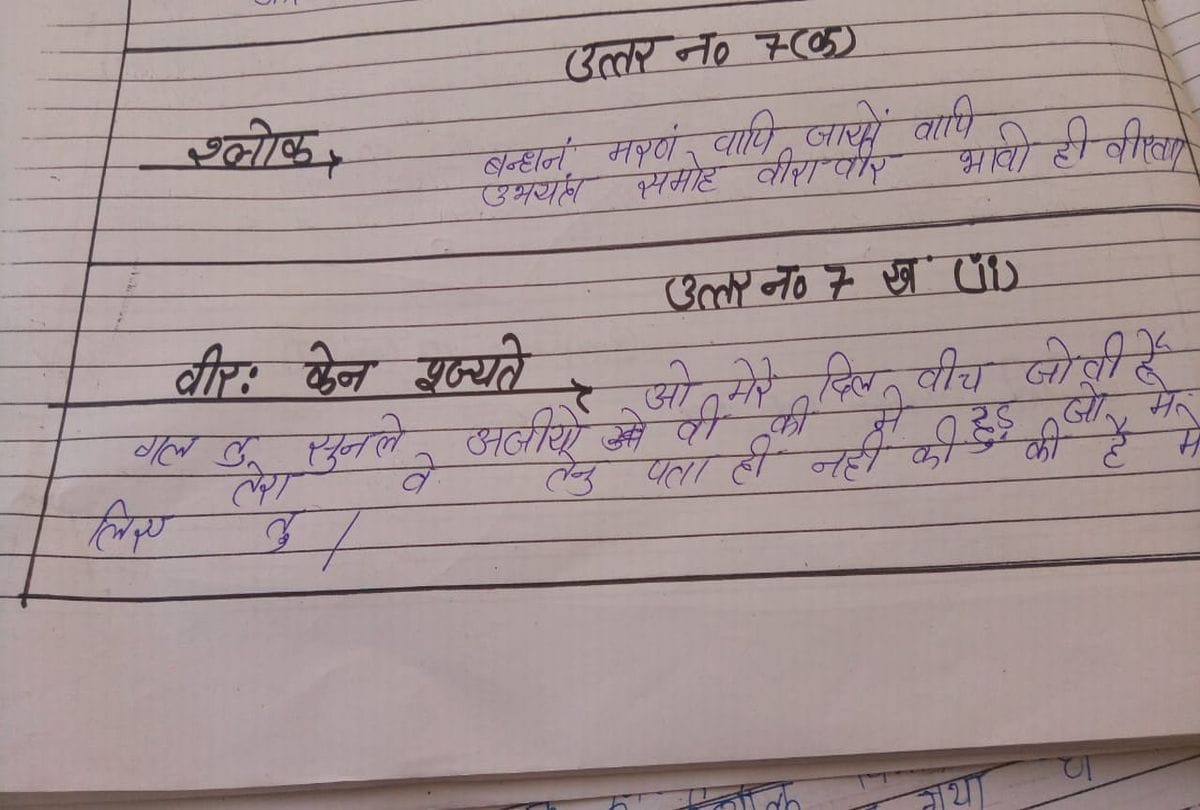 उत्तर न० 7(क)
श्लोक, बन्धनं मरणं वापि जायतें वापि
उभयत्र समोह वीरा वीर भावो ही वीरता
उत्तर न० 7 ख (ii)
वीर: केन श्ज्यते ओ मेरे दिल वीच जो वी है
गल तु सुनले अजीयो वी की मे हुड जो मे
तेरा वे तेनु पता ही नही की की है मे
लिए तु /
गया